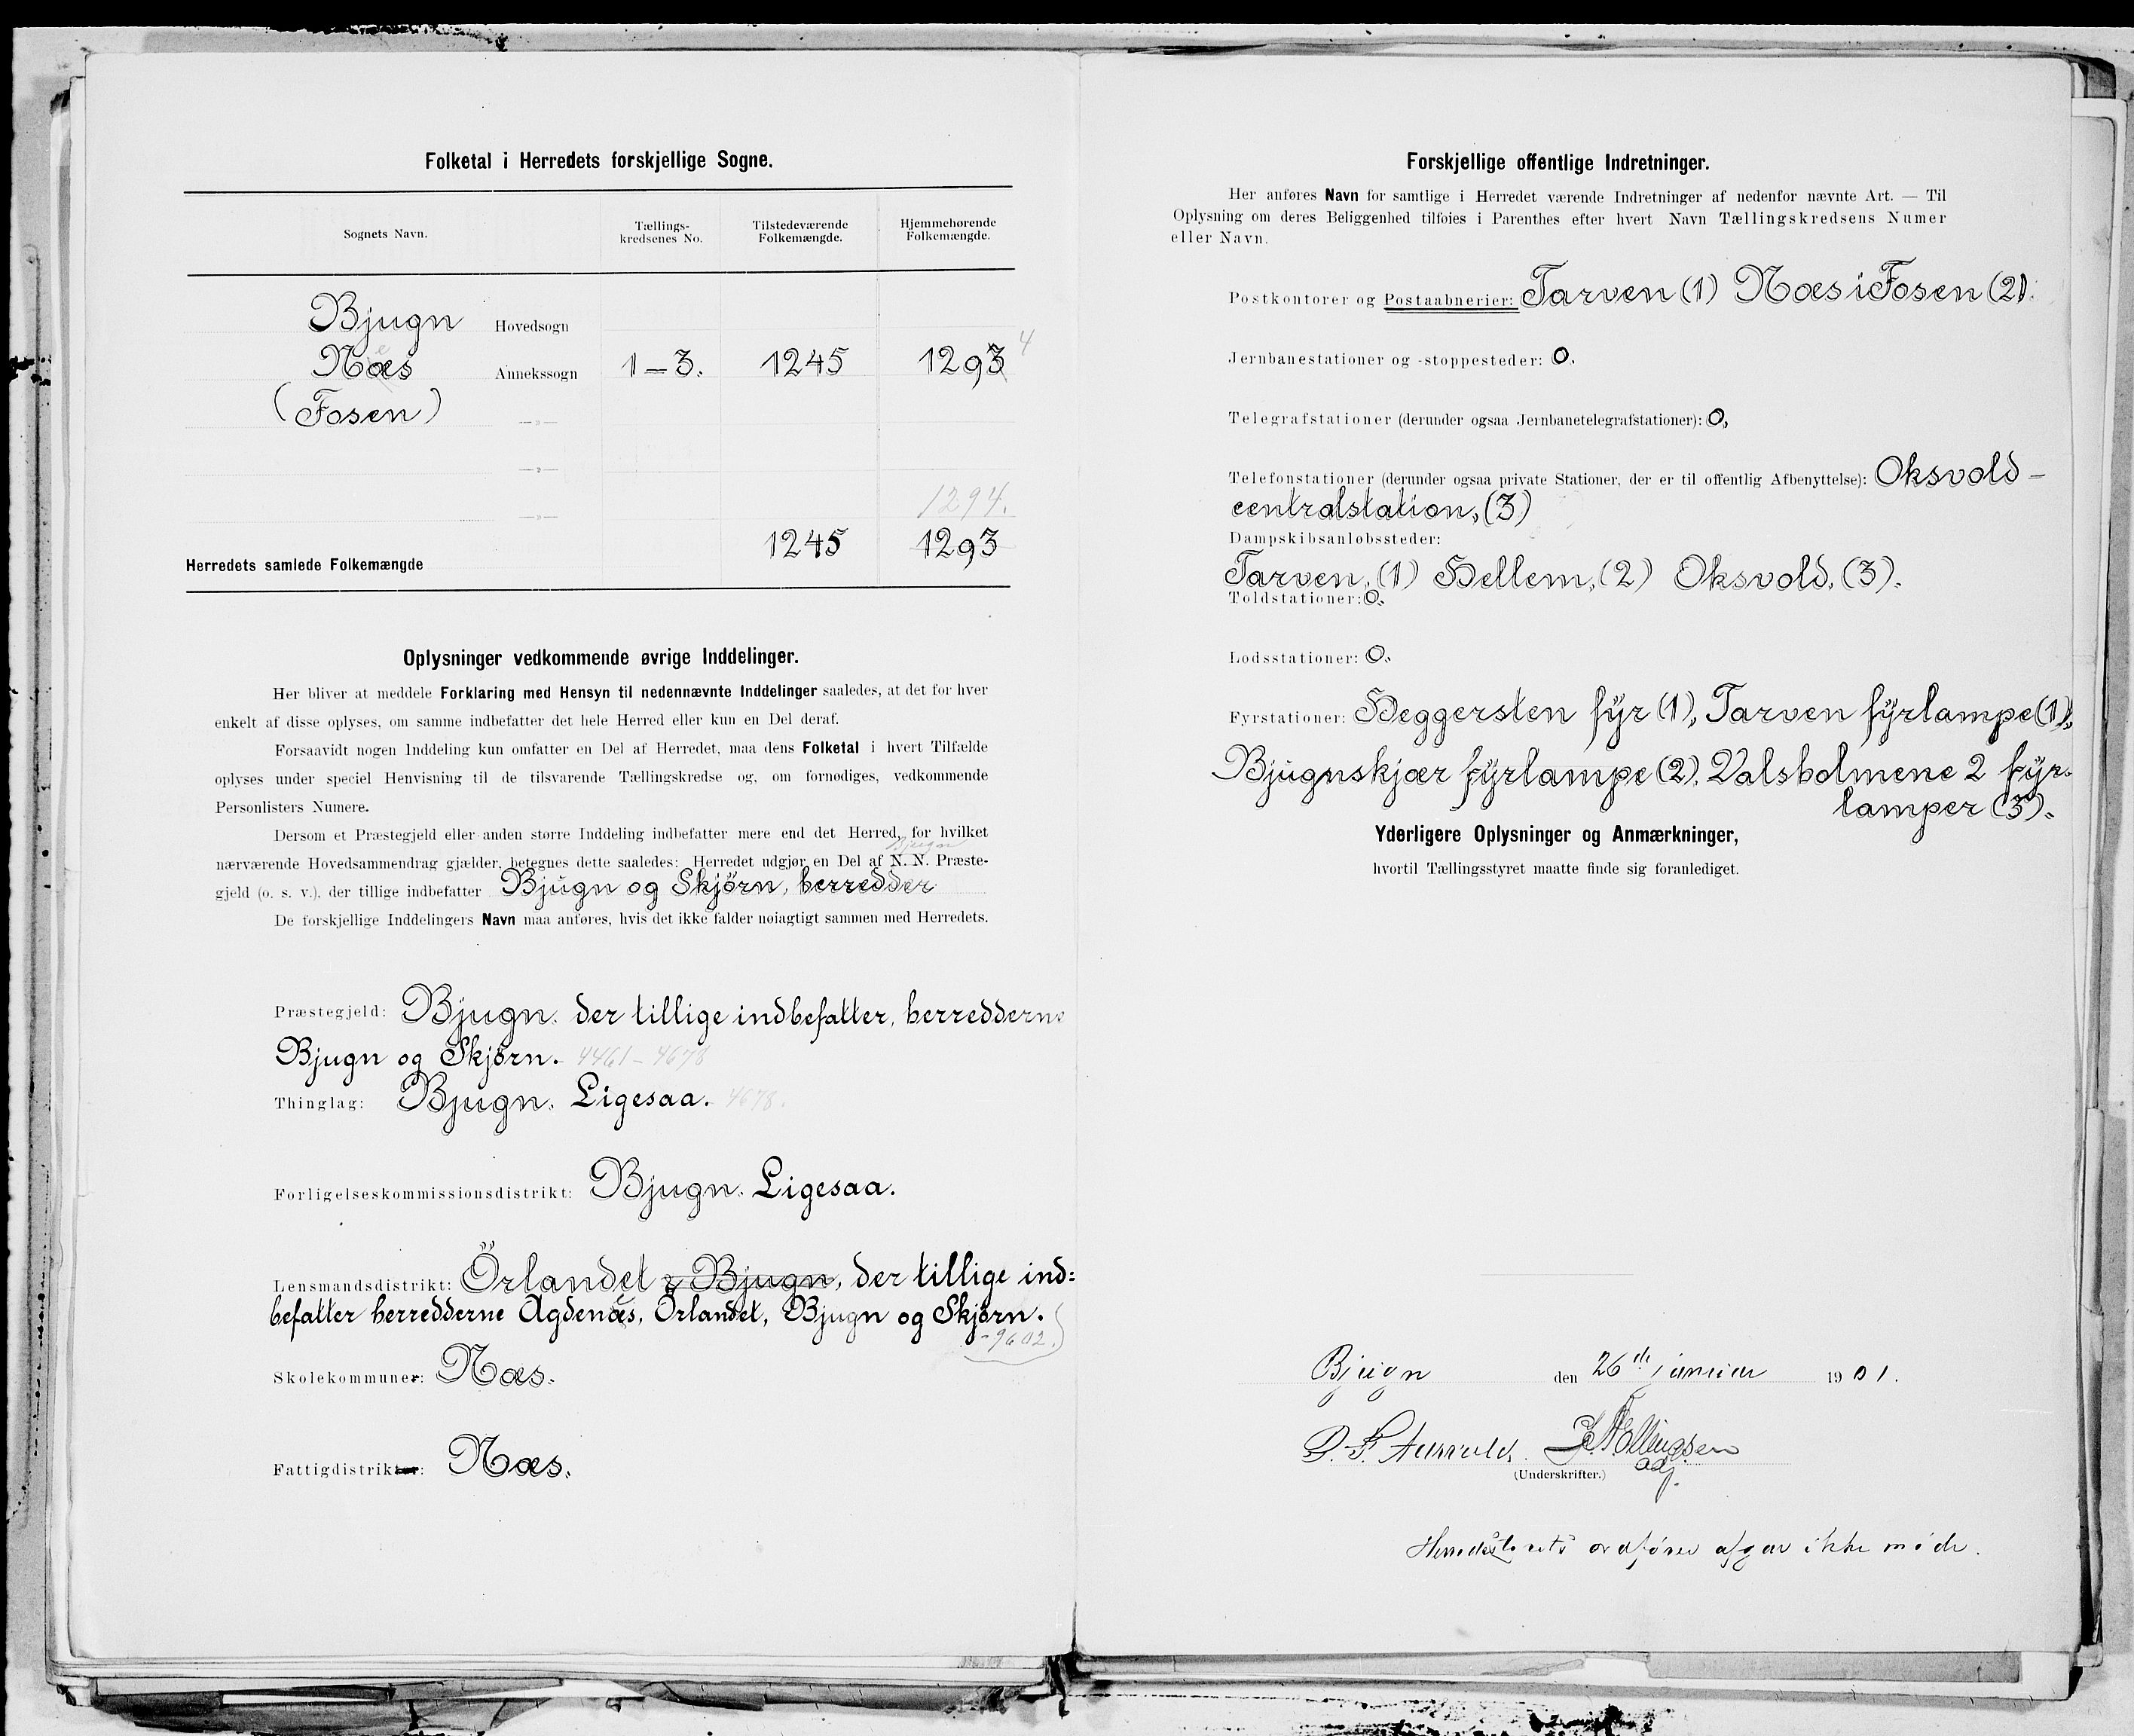 Folketal i Herredets forskjellige Sogne.
Sognets Navn.
Tællings-
kredsenes No.
Tilstedeværende
Folkemængde.
Hjemmehørende
Folkemængde.
Bjugn Hovedsogn
Næs Annekssogn 1-3. 1245 1293 4
(Fosen) —„—
—„—
1294.
—„—
Herredets samlede Folkemængde 1245 1293
Oplysninger vedkommende øvrige Inddelinger.
Her bliver at meddele Forklaring med Hensyn til nedennævnte Inddelinger saaledes, at det for hver
enkelt af disse oplyses, om samme indbefatter det hele Herred eller kun en Del deraf.
Forsaavidt nogen Inddeling kun omfatter en Del af Herredet, maa dens Folketal i hvert Tilfælde
oplyses under speciel Henvisning til de tilsvarende Tællingskredse og, om fornødiges, vedkommende
Personlisters Numere.
Dersom et Præstegjeld eller anden større Inddeling indbefatter mere end det Herred, for hvilket
Bjugn
nærværende Hovedsammendrag gjælder, betegnes dette saaledes: Herredet udgjør en Del af N. N. Præste-
gjeld (o. s. v.), der tillige indbefatter Bjugn og Skjörn, herredder
De forskjellige Inddelingers Navn maa anføres, hvis det ikke falder nøiagtigt sammen med Herredets.
Præstegjeld: Bjugn. der tillige indbefatter, herredderne
Bjugn og Skjörn. 4461-4678
Thinglag: Bjugn. Ligesaa. 4678.
Forligelseskommissionsdistrikt: Bjugn. Ligesaa.
Lensmandsdistrikt: Örlandet & Bjugn, der tillige ind=
befatter herredderne Agdenæs, Örlandet, Bjugn og Skjörn.
-9602.
Skolekommuner: Næs.
Fattigdistrikter: Næs.
Forskjellige offentlige Indretninger.
Her anføres Navn for samtlige i Herredet værende Indretninger af nedenfor nævnte Art. — Til
Oplysning om deres Beliggenhed tilføies i Parenthes efter hvert Navn Tællingskredsens Numer
eller Navn.
Postkontorer og Postaabnerier: Tarven (1) Næs i Fosen (2).
Jernbanestationer og -stoppesteder: 0.
Telegrafstationer (derunder ogsaa Jernbanetelegrafstationer): 0,
Telefonstationer (derunder ogsaa private Stationer, der er til offentlig Afbenyttelse): Oksvold-
centralstation, (3)
Dampskibsanløbssteder:
Tarven, (1) Hellem, (2) Oksvold, (3).
Toldstationer: 0.
Lodsstationer: 0.
Fyrstationer: Heggersten fyr (1), Tarven fyrlampe (1),
Bjugnskjær fyrlampe (2), Valsholmene 2 fyr-
lamper (3).
Yderligere Oplysninger og Anmærkninger,
hvortil Tællingsstyret maatte finde sig foranlediget.
Bjugn den 26de januar 1901.
Ellingsen
(Underskrifter.) adj.
Herredsstyrets ordfører afgav ikke møde.